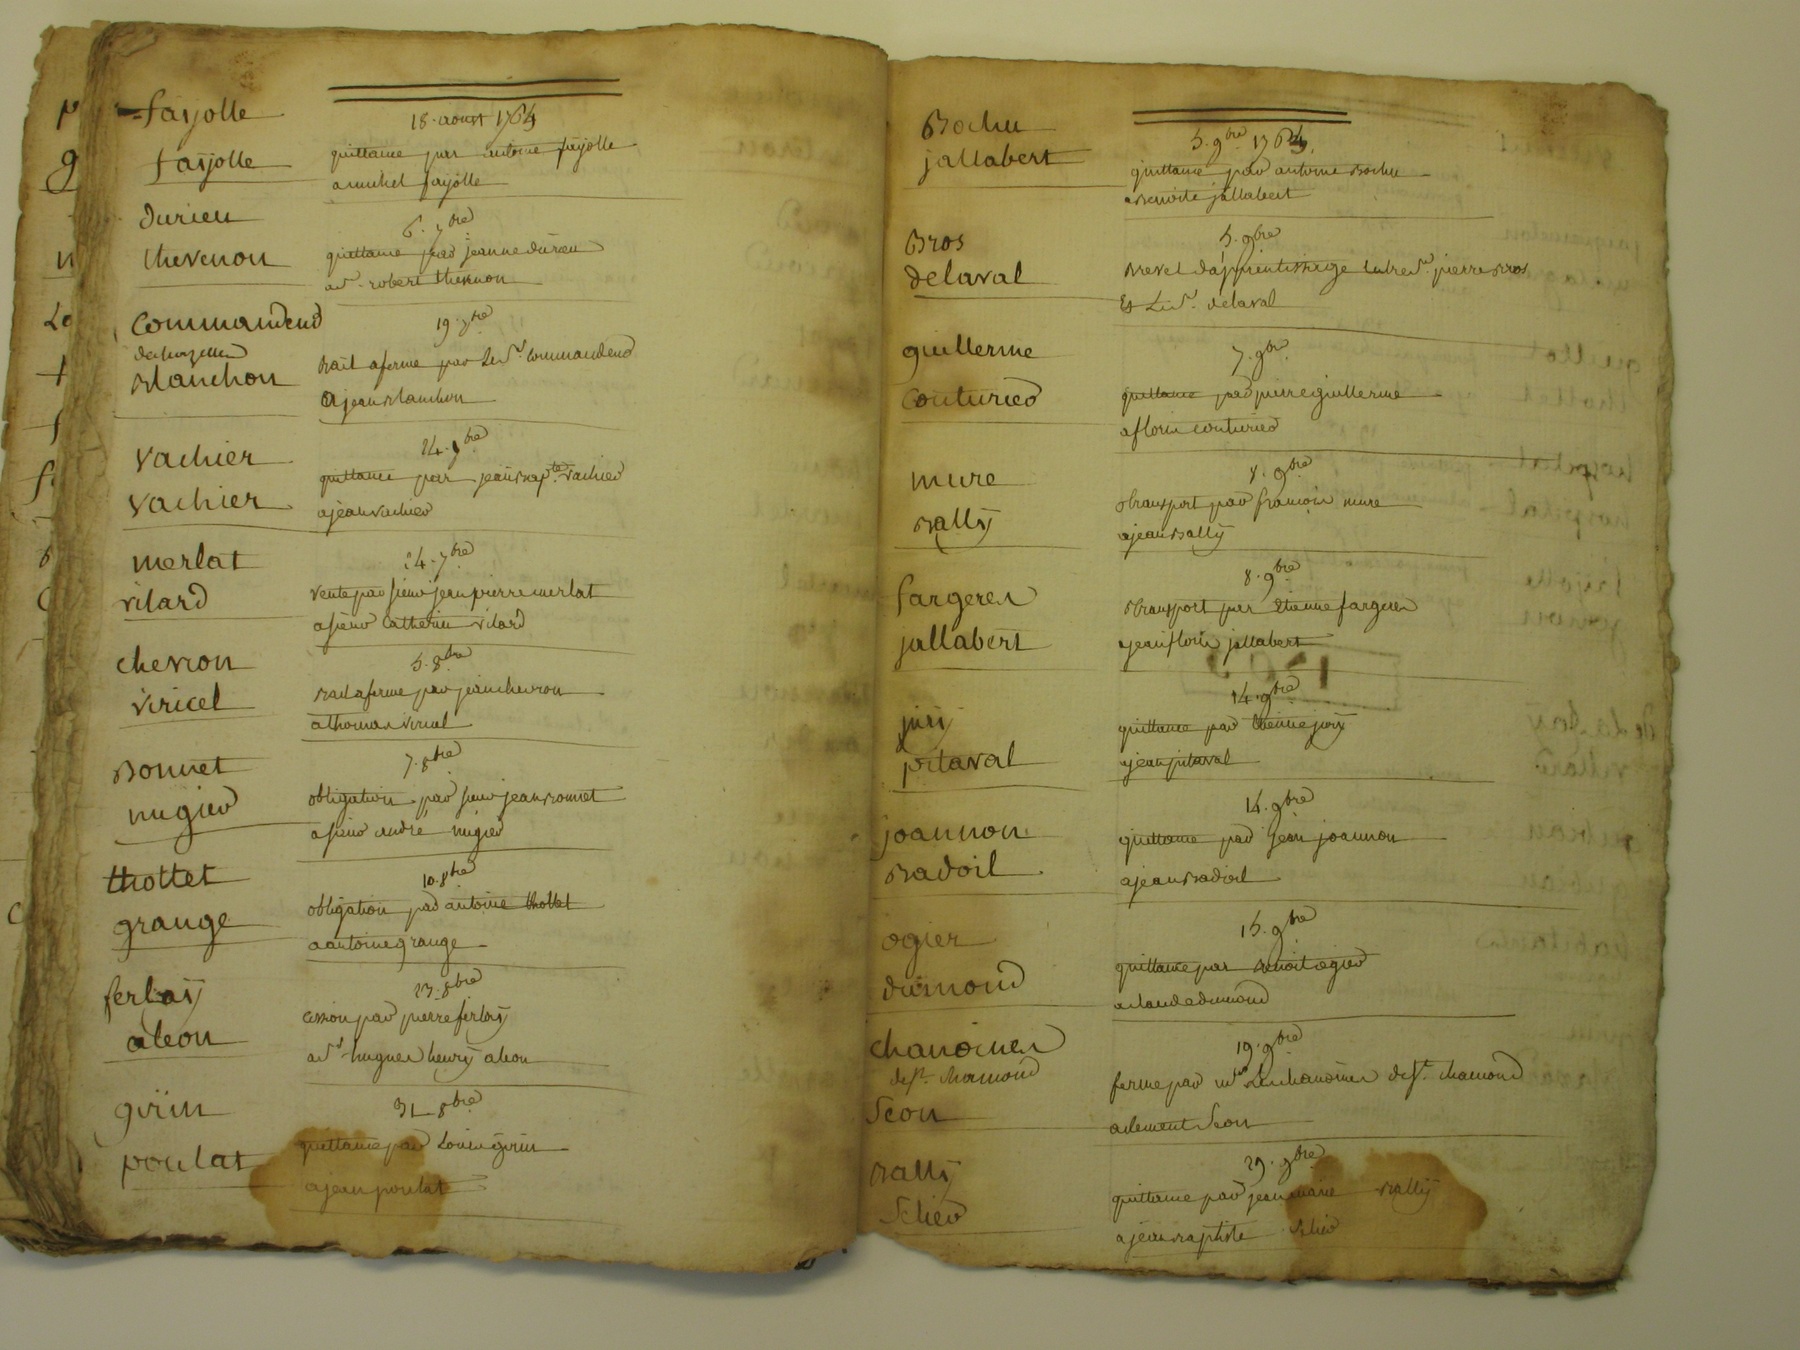 fayolle
fayolle
18. aoust 1764
quittance par antoine fayolle
a michel fayolle
durieu
thevenon
6. 7bre
quittance par jeanne durieu
a sr. robert thevenon
Commandeud
Blanchon
19. 7bre
Bail a ferme par le sr. Commandeud
a jean Blanchon
vachier
vachier
24. 7bre
quittance par jean Bapte. vachier
a jean vachier
merlat
vilard
24. 7bre
vente par sieur jean pierre merlat
a sieur Catherin vilard
chevron
viricel
5. 8bre
Bail a ferme par jean chevron
a thomas viricel
Bonnet
nugier
7. 8bre
obligation par sieur jean Bonnet
a sieur andré nugier
thollet
grange
10. 8bre
obligation par antoine thollet
a antoine grange
ferlay
aleon
23. 8bre
cession par pierre ferlay
a sr. hugues henry aleon
girin
poulat
31. 8bre
quittance par Louis girin
a jean poulat
Bochu
jallabert
5. 9bre 1764
quittance par antoine Bochu
a Benoite jallabert
Bros
delaval
5. 9bre
Brevet d'apprentissage entre sr. pierre Bros
Et le sr. delaval
guillerme
Couturier
7. 9bre
quittance par pierre guillerme
a florie couturier
mure
Bally
8. 9bre
transport par françois mure
a jean Bally
fargeres
jallabert
8. 9bre
transport par etienne fargeres
a jean floris jallabert
jury
pitaval
14. 9bre
quittance par etienne jury
a jean pitaval
joannon
Badoil
14. 9bre
quittance par jean joannon
a jean Badoil
ogier
dumond
15. 9bre
quittance par Benoit ogier
a claude dumond
chanoines
de st. chamond
Seon
19. 9bre
ferme par mrs les chanoines de st. chamond
a clement Seon
Bally
Selier
29. 9bre
quittance par jean marie Bally
a jean Baptiste Selier